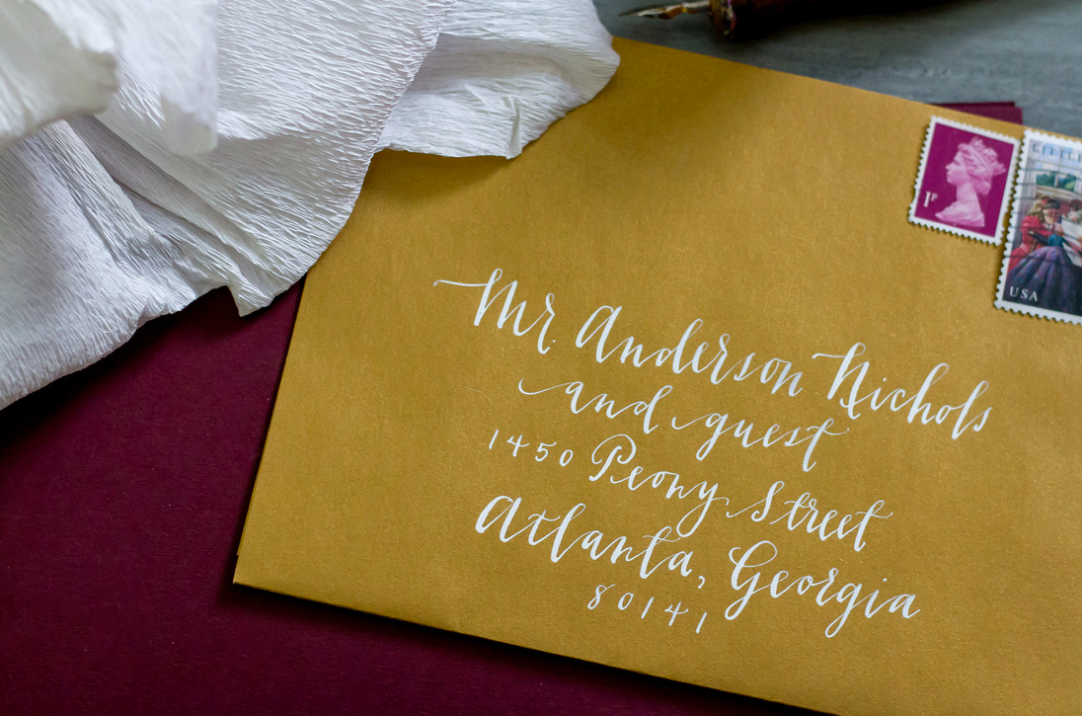 1P
USA
Mr. Anderson Nichols
and guest
1450 Peony Street
Atlanta, Georgia
80141